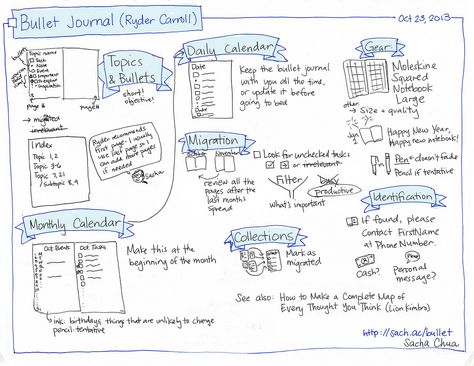 Bullet Journal (Ryder Carroll)
Oct 23, 2013
Topics
& Bullets
short!
objective!
Topic name
Task
Note
Event
Important
Explore
Inspiration
page #
page #
migrated
irrelevant
Index
Topic 1, 2
Topic 3-6
Topic 7, 21
Subtopic 8, 9
Ryder recommends
first page. I usually
use last page so I
can add more pages
if needed.
Sacha
Daily Calendar
Date
Date
Keep the bullet journal
with you all the time,
or update it before
going to bed
Gear
Moleskine
Squared
Notebook
Large
other
Size + quality
Jan
1
Happy New Year,
Happy new notebook!
Pen doesn't fade
Pencil if tentative
Migration
October
November
review all the
pages after the
last month's
spread
Look for unchecked tasks
or irrelevant
Filter
what's important
busy
productive
Identification
If found, please
Contact FirstName
at Phone Number.
Cash?
Personal
message?
Monthly Calendar
Oct Events
Oct Tasks
Make this at the
beginning of the month
ink: birthdays, things that are unlikely to change
pencil: tentative
Collections
Mark as
migrated
See also: How to Make a Complete Map of
Every Thought You Think (Lion Kimbro)
http://sach.ac/bullet
Sacha Chua